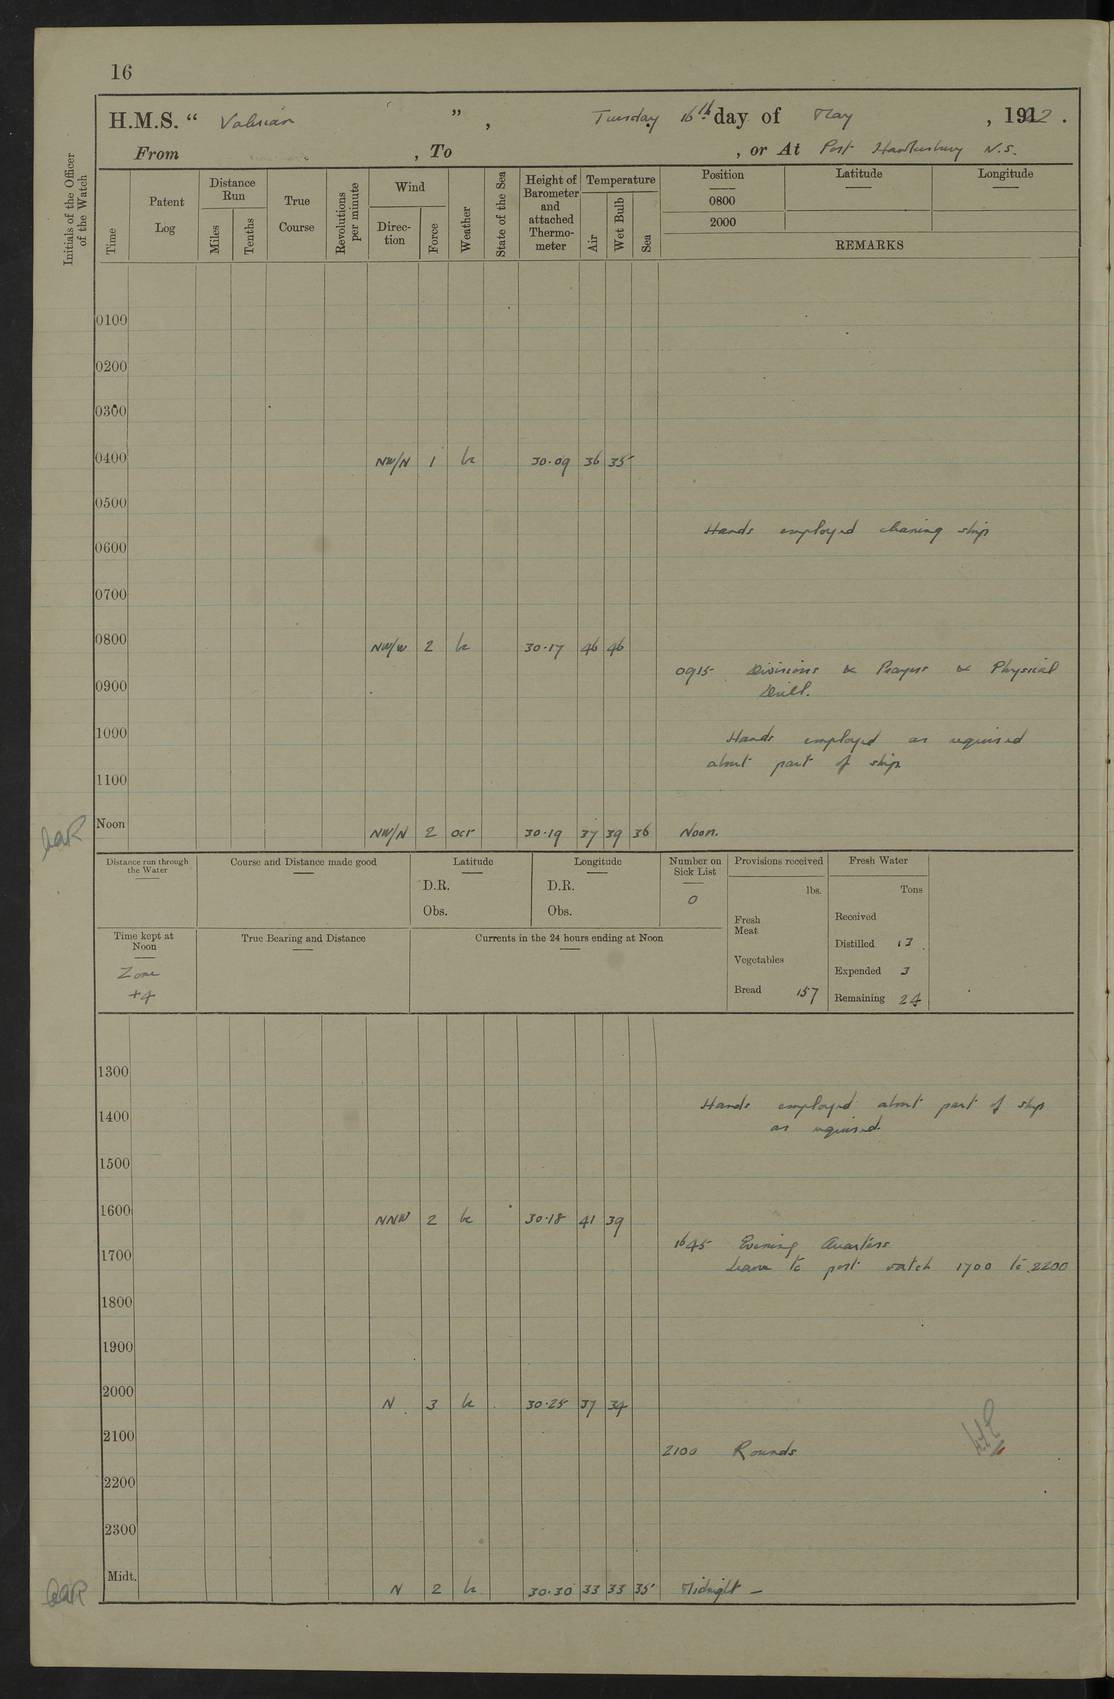 16
H.M.S. " Valerian " , Tuesday 16th day of May , 1922 .
From , To , or At Port Hawkesbury N.S.
Initials of the Officer of the Watch
Time
Patent Log
Distance Run
Miles
Tenths
True Course
Revolutions per minute
Wind
Direc-tion
Force
Weather
State of the Sea
Height of Barometer and attached Thermo-meter
Temperature
Air
Wet Bulb
Sea
Position Latitude Longitude
0800
2000
REMARKS
0100
0200
0300
0400 NW/N 1 bc 30.09 36 35
0500
Hands employed cleaning ship
0600
0700
0800 NW/W 2 bc 30.17 46 46
0915 Divisions & Prayers & Physical
Drill.
0900
1000 Hands employed as required
about part of ship
1100
Noon NW/N 2 ocr 30.19 37 39 36 Noon.
Distance run through the Water
Course and Distance made good
Latitude
D.R.
Obs.
Longitude
D.R.
Obs.
Number on Sick List
0
Provisions received
lbs.
Fresh Meat
Vegetables
Bread 157
Fresh Water
Tons
Received
Distilled 13
Expended 3
Remaining 24
Time kept at Noon
Zone
+4
True Bearing and Distance
Currents in the 24 hours ending at Noon
1300
Hands employed about part of ship
1400
as required.
1500
1600 NNW 2 bc 30.18 41 39
1645 Evening Quarters
1700
Leave to port watch 1700 to 2200
1800
1900
2000 N 3 bc 30.25 37 34
2100
2100 Rounds
2200
2300
Midt. N 2 bc 30.30 33 33 35 Midnight —